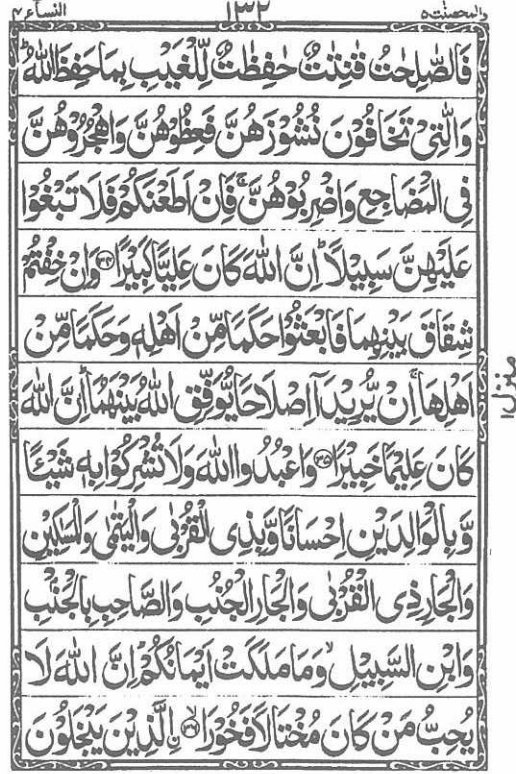 والمحصنت ۵ ۱۳۲ النسآء ۴
فَالصّٰلِحٰتُ قٰنِتٰتٌ حٰفِظٰتٌ لِّلْغَيْبِ بِمَا حَفِظَ اللّٰهُ ؕ
وَالّٰتِیْ تَخَافُوْنَ نُشُوْزَهُنَّ فَعِظُوْهُنَّ وَاهْجُرُوْهُنَّ
فِی الْمَضَاجِعِ وَاضْرِبُوْهُنَّ ۚ فَاِنْ اَطَعْنَكُمْ فَلَا تَبْغُوْا
عَلَيْهِنَّ سَبِيْلًا ؕ اِنَّ اللّٰهَ كَانَ عَلِيًّا كَبِيْرًا ﴿۳۴﴾ وَاِنْ خِفْتُمْ
شِقَاقَ بَيْنِهِمَا فَابْعَثُوْا حَكَمًا مِّنْ اَهْلِهٖ وَحَكَمًا مِّنْ
اَهْلِهَا ۚ اِنْ يُّرِيْدَاۤ اِصْلَاحًا يُّوَفِّقِ اللّٰهُ بَيْنَهُمَا ؕ اِنَّ اللّٰهَ
كَانَ عَلِيْمًا خَبِيْرًا ﴿۳۵﴾ وَاعْبُدُوا اللّٰهَ وَلَا تُشْرِكُوْا بِهٖ شَيْـًٔا
وَّبِالْوَالِدَيْنِ اِحْسَانًا وَّبِذِی الْقُرْبٰى وَالْيَتٰمٰى وَالْمَسٰكِيْنِ
وَالْجَارِ ذِی الْقُرْبٰى وَالْجَارِ الْجُنُبِ وَالصَّاحِبِ بِالْجَنْۢبِ
وَابْنِ السَّبِيْلِ ۙ وَمَا مَلَكَتْ اَيْمَانُكُمْ ؕ اِنَّ اللّٰهَ لَا
يُحِبُّ مَنْ كَانَ مُخْتَالًا فَخُوْرًا ﴿۳۶﴾ ۙ اۨلَّذِيْنَ يَبْخَلُوْنَ
منزل ۱